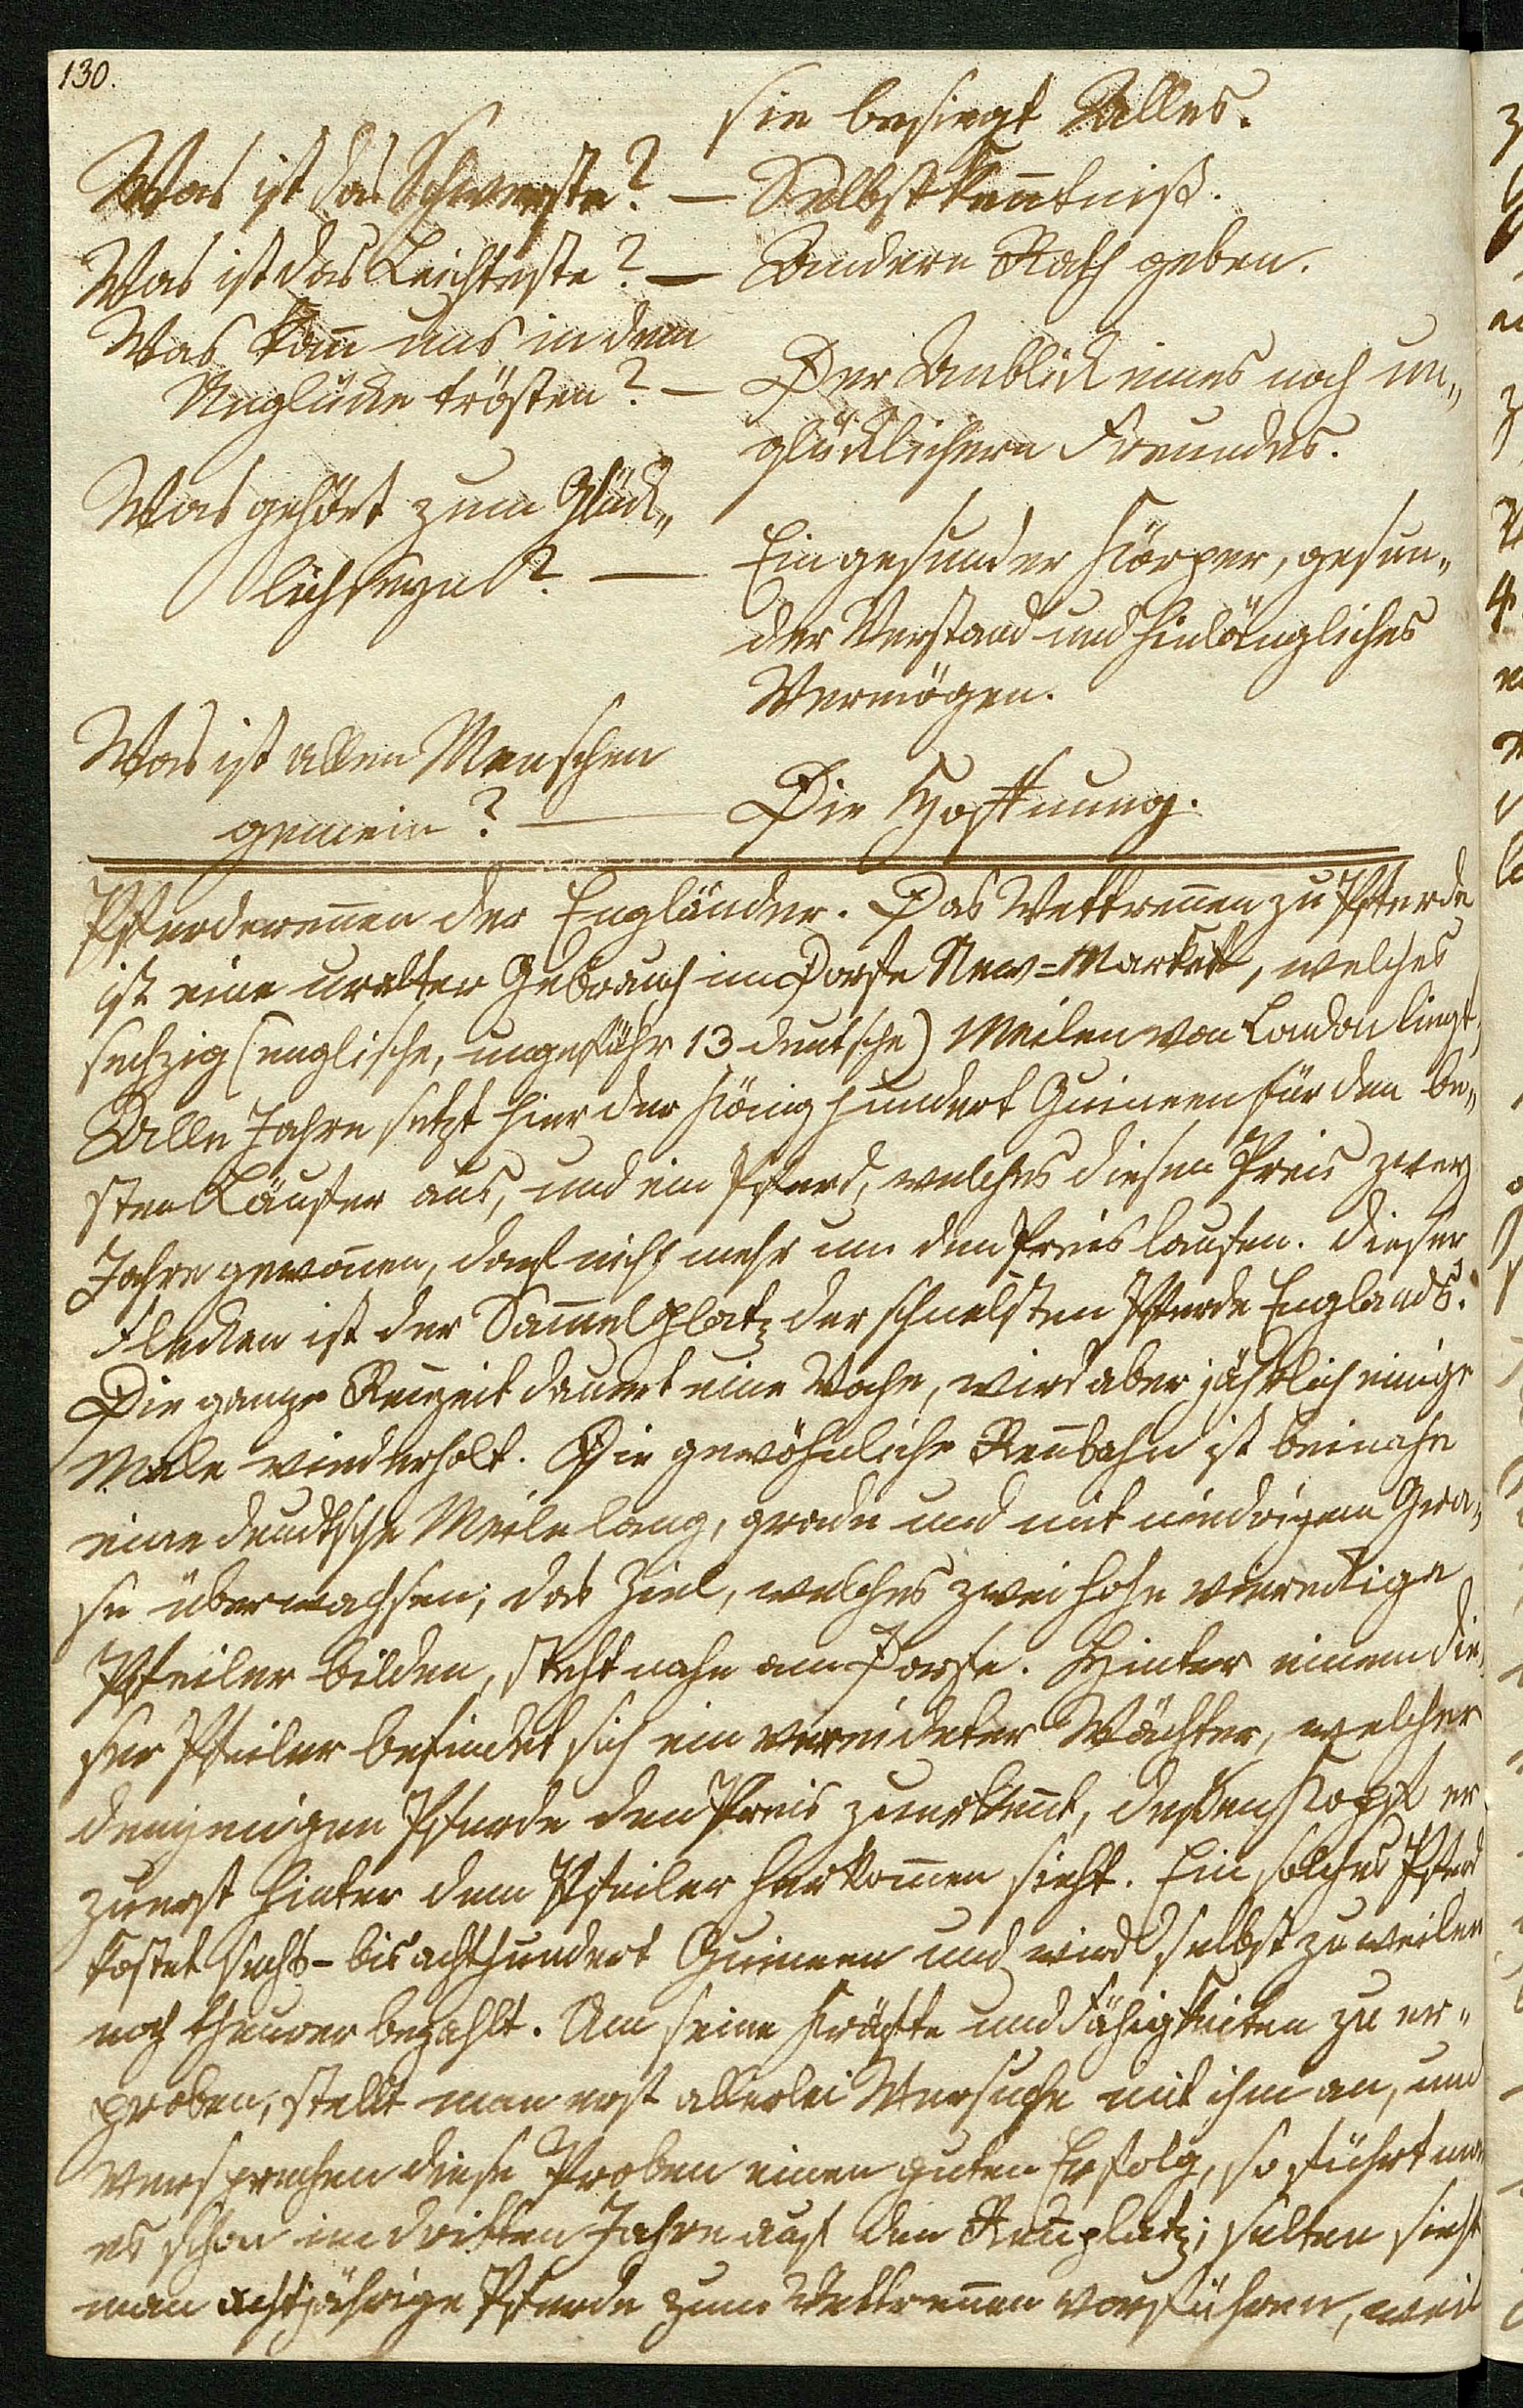 130.
sie besiegt Alles.
Was ist das Schwerste? — Selbstkenntniß.
Was ist das Leichteste? — Andern Rath geben.
Was kan̄ uns in dem
Unglücke trösten? — Der Anblick eines noch un„
glücklichern Freundes.
Was gehört zum Glück„
lichseyn? — Ein gesunder Körper, gesun„
der Verstand und hinlängliches
Vermögen.
Was ist allen Menschen
gemein? — Die Hoffnung.
Pferderen̄en der Engländer. Das Wettren̄en zu Pferde
ist eine uralter Gebrauch im Dorfe New=Markett, welches
sechzig (englische, ungefähr 13 deutsche) Meilen von London liegt,
Alle Jahre setzt hier der König hundert Guineen für den be„
sten Läufer aus, und ein Pferd, welches diesen Preis zwey
Jahre gewon̄en, darf nicht mehr um den Preis laufen. Dieser
Flecken ist der Sam̄elplatz der schnellsten Pferde Englands.
Die ganze Ren̄zeit dauert eine Woche, wird aber jährlich einige
Male wiederholt. Die gewöhnliche Ren̄bahn ist beinahe
eine deutsche Meile lang, grade und mit niedrigem Gra„
se überwachsen; das Ziel, welches zwei hohe viereckige
Pfeiler bilden, steht nahe am Dorfe. Hinter einem die„
ser Pfeiler befindet sich ein vereideter Wächter, welcher
demjenigen Pferde den Preis zuerken̄t, deßen Kopf er
zuerst hinter dem Pfeiler herkom̄en sieht. Ein solches Pferd
kostet sechs- bis achthundert Guineen und wird selbst zuweilen
noch theurer bezahlt. Um seine Kräfte und Fähigkeiten zu er„
proben, stellt man erst allerlei Versuche mit ihm an, und
versprechen diese Proben einen guten Erfolg, so führt man
es schon im dritten Jahre auf den Ren̄platz; selten sieht
man achtjährige Pferde zum Wettren̄en vorführen, weil